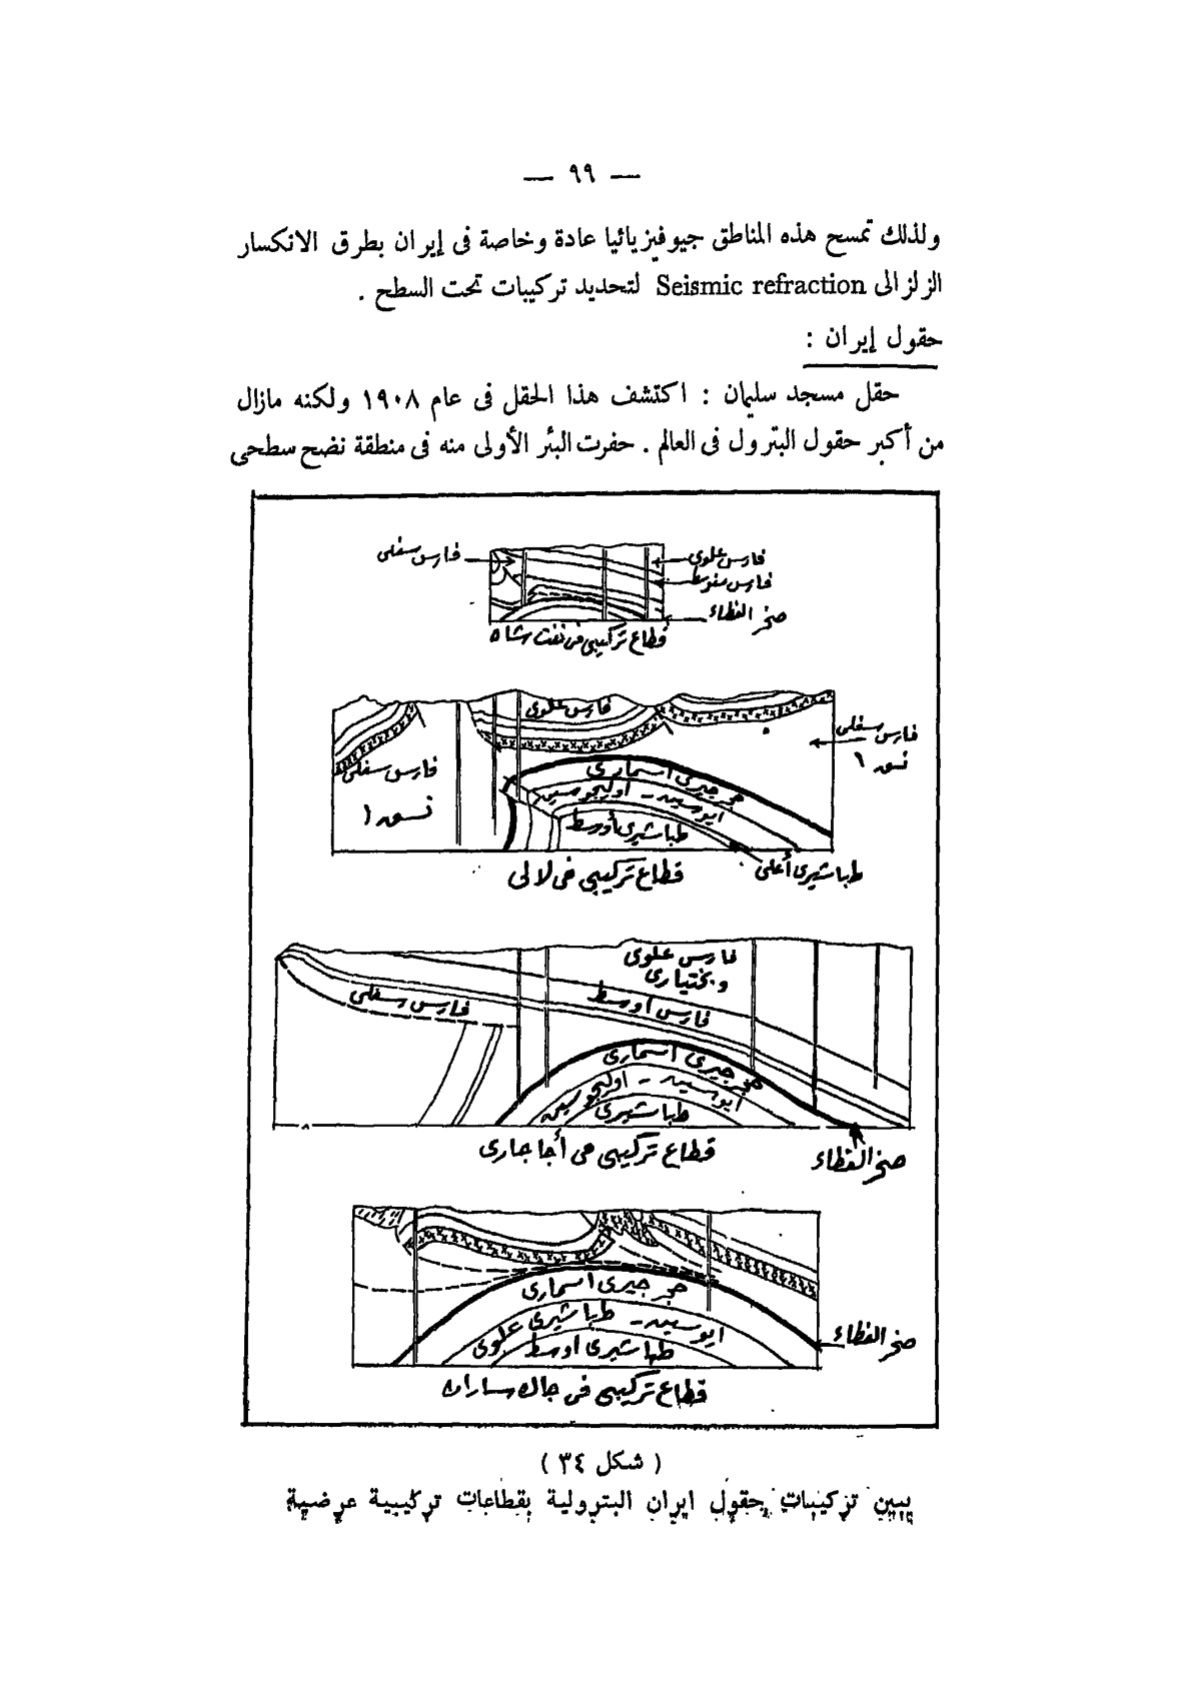 — ٩٩ —
ولذلك تمسح هذه المناطق جيوفيزيائيا عادة وخاصة فى إيران بطرق الانكسار
الزلزالى Seismic refraction لتحديد تركيبات تحت السطح .
حقول إيران :
حقل مسجد سليمان : اكتشف هذا الحقل فى عام ١٩٠٨ ولكنه مازال
من أكبر حقول البترول فى العالم . حفرت البئر الأولى منه فى منطقة نضح سطحى
فارس سفلى
فارس علوى
فارس متوسط
صخر الغطاء
قطاع تركيبى فى نفت شاه
فارس علوى
فارس سفلى
فارس سفلى
نسق ١
نسق ١
حجر جيرى اسمارى
ايوسين - اوليجوسين
طباشيرى أوسط
طباشيرى أعلى
قطاع تركيبى فى لالى
فارس علوى
وبختيارى
فارس اوسط
فارس سفلى
حجر جيرى اسمارى
ايوسين - اوليجوسين
طباشيرى
صخر الغطاء
قطاع تركيبى فى أجا جارى
حجر جيرى اسمارى
ايوسين - طباشيرى علوى
طباشيرى اوسط
صخر الغطاء
قطاع تركيبى فى جاك ساران
( شكل ٣٤ )
يبين تركيبات حقول ايران البترولية بقطاعات تركيبية عرضية